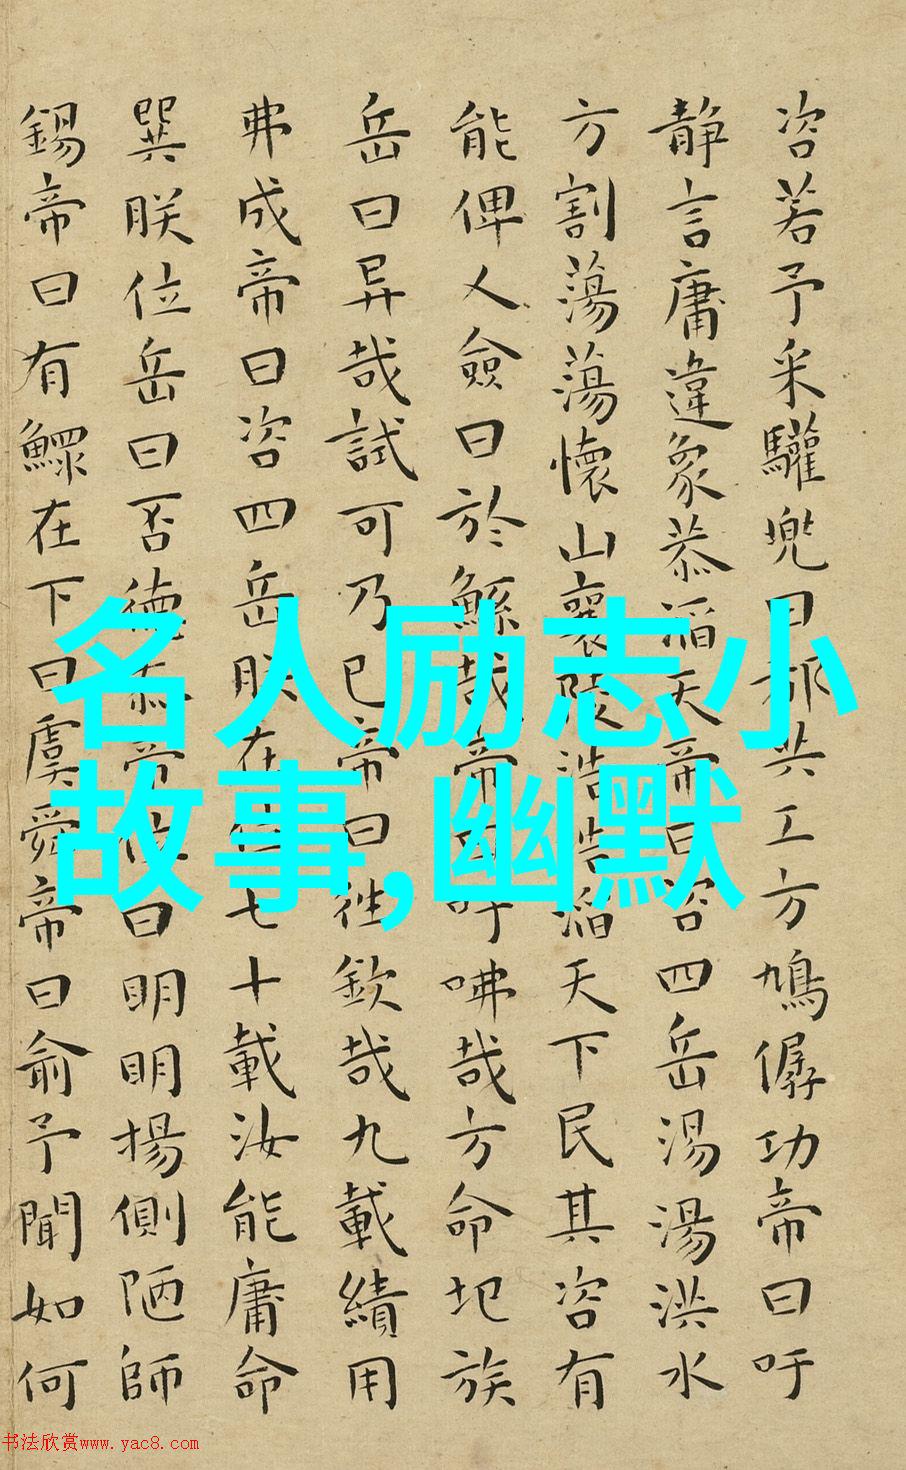 咨若予采驩兜曰都共工方鳩僝功帝曰吁
靜言庸違象恭滔天帝曰咨四岳湯湯洪水
方割蕩蕩懷山襄陵浩浩滔天下民其咨有
能俾乂僉曰於鯀哉帝曰吁咈哉方命圯族
岳曰异哉試可乃已帝曰往欽哉九載績用
弗成帝曰咨四岳朕在位七十載汝能庸命
巽朕位岳曰否德忝帝位曰明明揚側陋師
錫帝曰有鰥在下曰虞舜帝曰俞予聞如何
名人励志小
故事,幽默
书法欣赏www.yac8.com